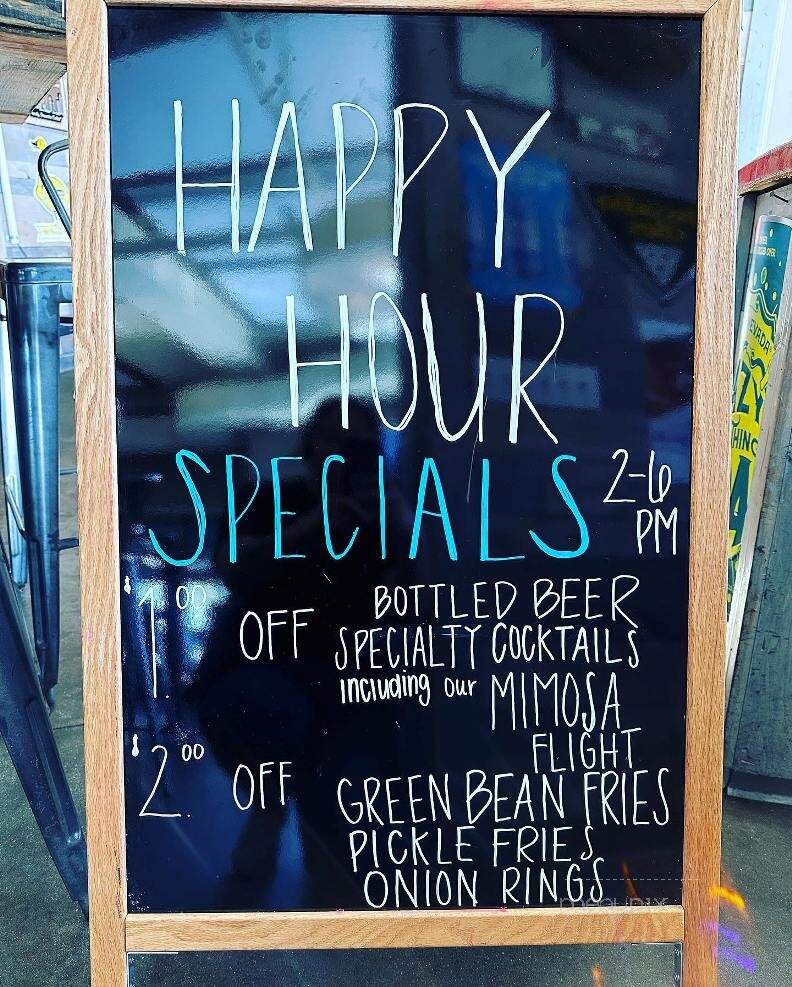 HAPPY
HOUR
SPECIALS 2-6
PM
$1.00 OFF BOTTLED BEER
SPECIALTY COCKTAILS
including our MIMOSA
FLIGHT
$2.00 OFF GREEN BEAN FRIES
PICKLE FRIES
ONION RINGS